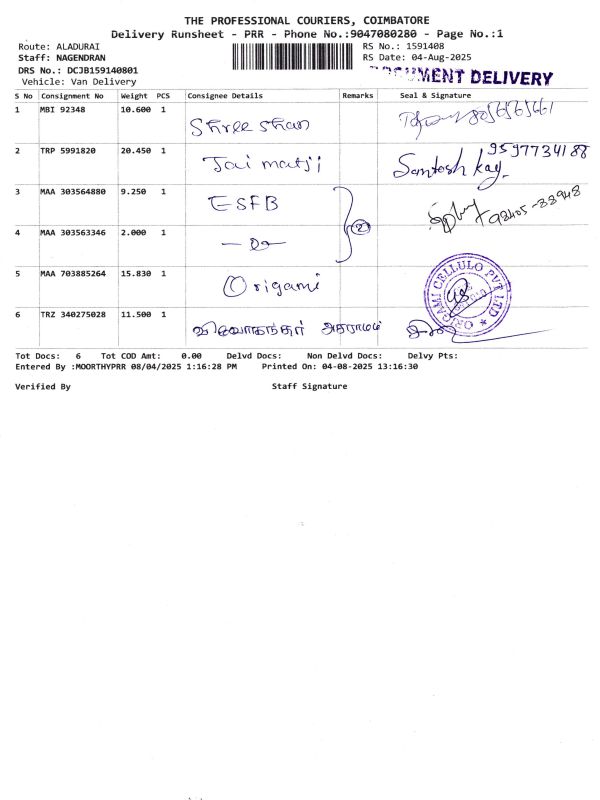 THE PROFESSIONAL COURIERS, COIMBATORE
Delivery Runsheet - PRR - Phone No.:9047080280 - Page No.:1
Route: ALADURAI RS No.: 1591408
Staff: NAGENDRAN RS Date: 04-Aug-2025
DRS No.: DCJB159140801
Vehicle: Van Delivery
DELIVERY
S No Consignment No Weight PCS Consignee Details Remarks Seal & Signature
1 MBI 92348 10.600 1 Shree Shan
2 TRP 5991820 20.450 1 Jai matji Santosh Kay 9597734188
3 MAA 303564880 9.250 1 ESFB 98405-88948
4 MAA 303563346 2.000 1 - Do - 2
5 MAA 703885264 15.830 1 Origami ORIGAMI CELLULO PVT LTD
6 TRZ 340275028 11.500 1
Tot Docs: 6 Tot COD Amt: 0.00 Delvd Docs: Non Delvd Docs: Delvy Pts:
Entered By :MOORTHYPRR 08/04/2025 1:16:28 PM Printed On: 04-08-2025 13:16:30
Verified By Staff Signature